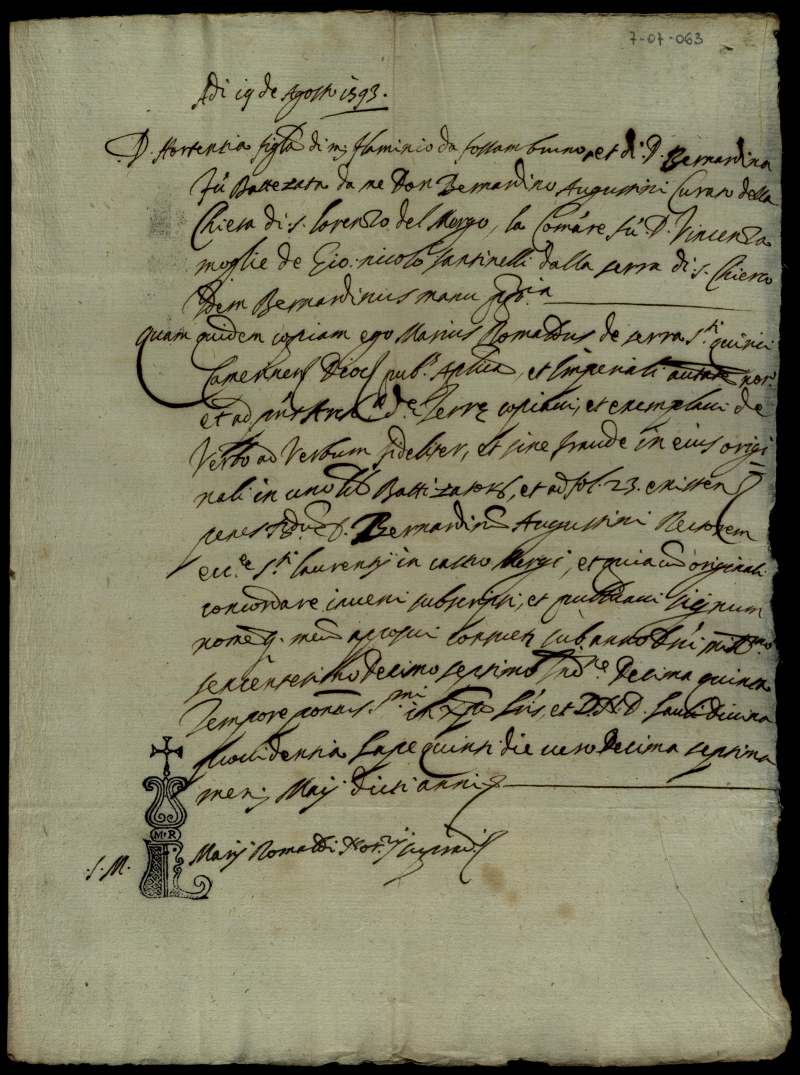 7-07-063
Adi 19 de Agosto 1593.
D. Hortentia figlia di m. flaminio da fossambruno, et di D. Bernardina
fù Battezata da me Don Bernardino Augustini Curato della
Chiesa di s. lorenzo del Mergo, la Comàre fù D. Vincenza
moglie de Gio: nicolo santinelli dalla serra di s. Chierco
Idem Bernardinus manu ppria
quam quidem copiam ego Marius Romaldus de serra sti quirici
Camerinen Dioc pubs Aplica, et Imperiali not.
et ad de Terre copiavi, et exemplavi de
Verbo ad Verbum fideliter, et sine fraude in eius origi
nali in uno lib Battizator, et ad fol. 23. existen
penes D. Bernardin Augustini Rectorem
ecce sti laurentij in castro Mergi, et quia cu originali
concordare inveni subscripsi, et publicavi signum
nomeq. meu apposui consuet sub anno Dni mill.mo
sexcentesimo Decimo septimo Ind.ne Decima quinta
Tempore in Xpo pris, et D.N.D. Pauli divina
providentia Pape quinti die vero Decima septima
mens Maij dicti anni
M R
s. M. Marij Romaldi Notrij